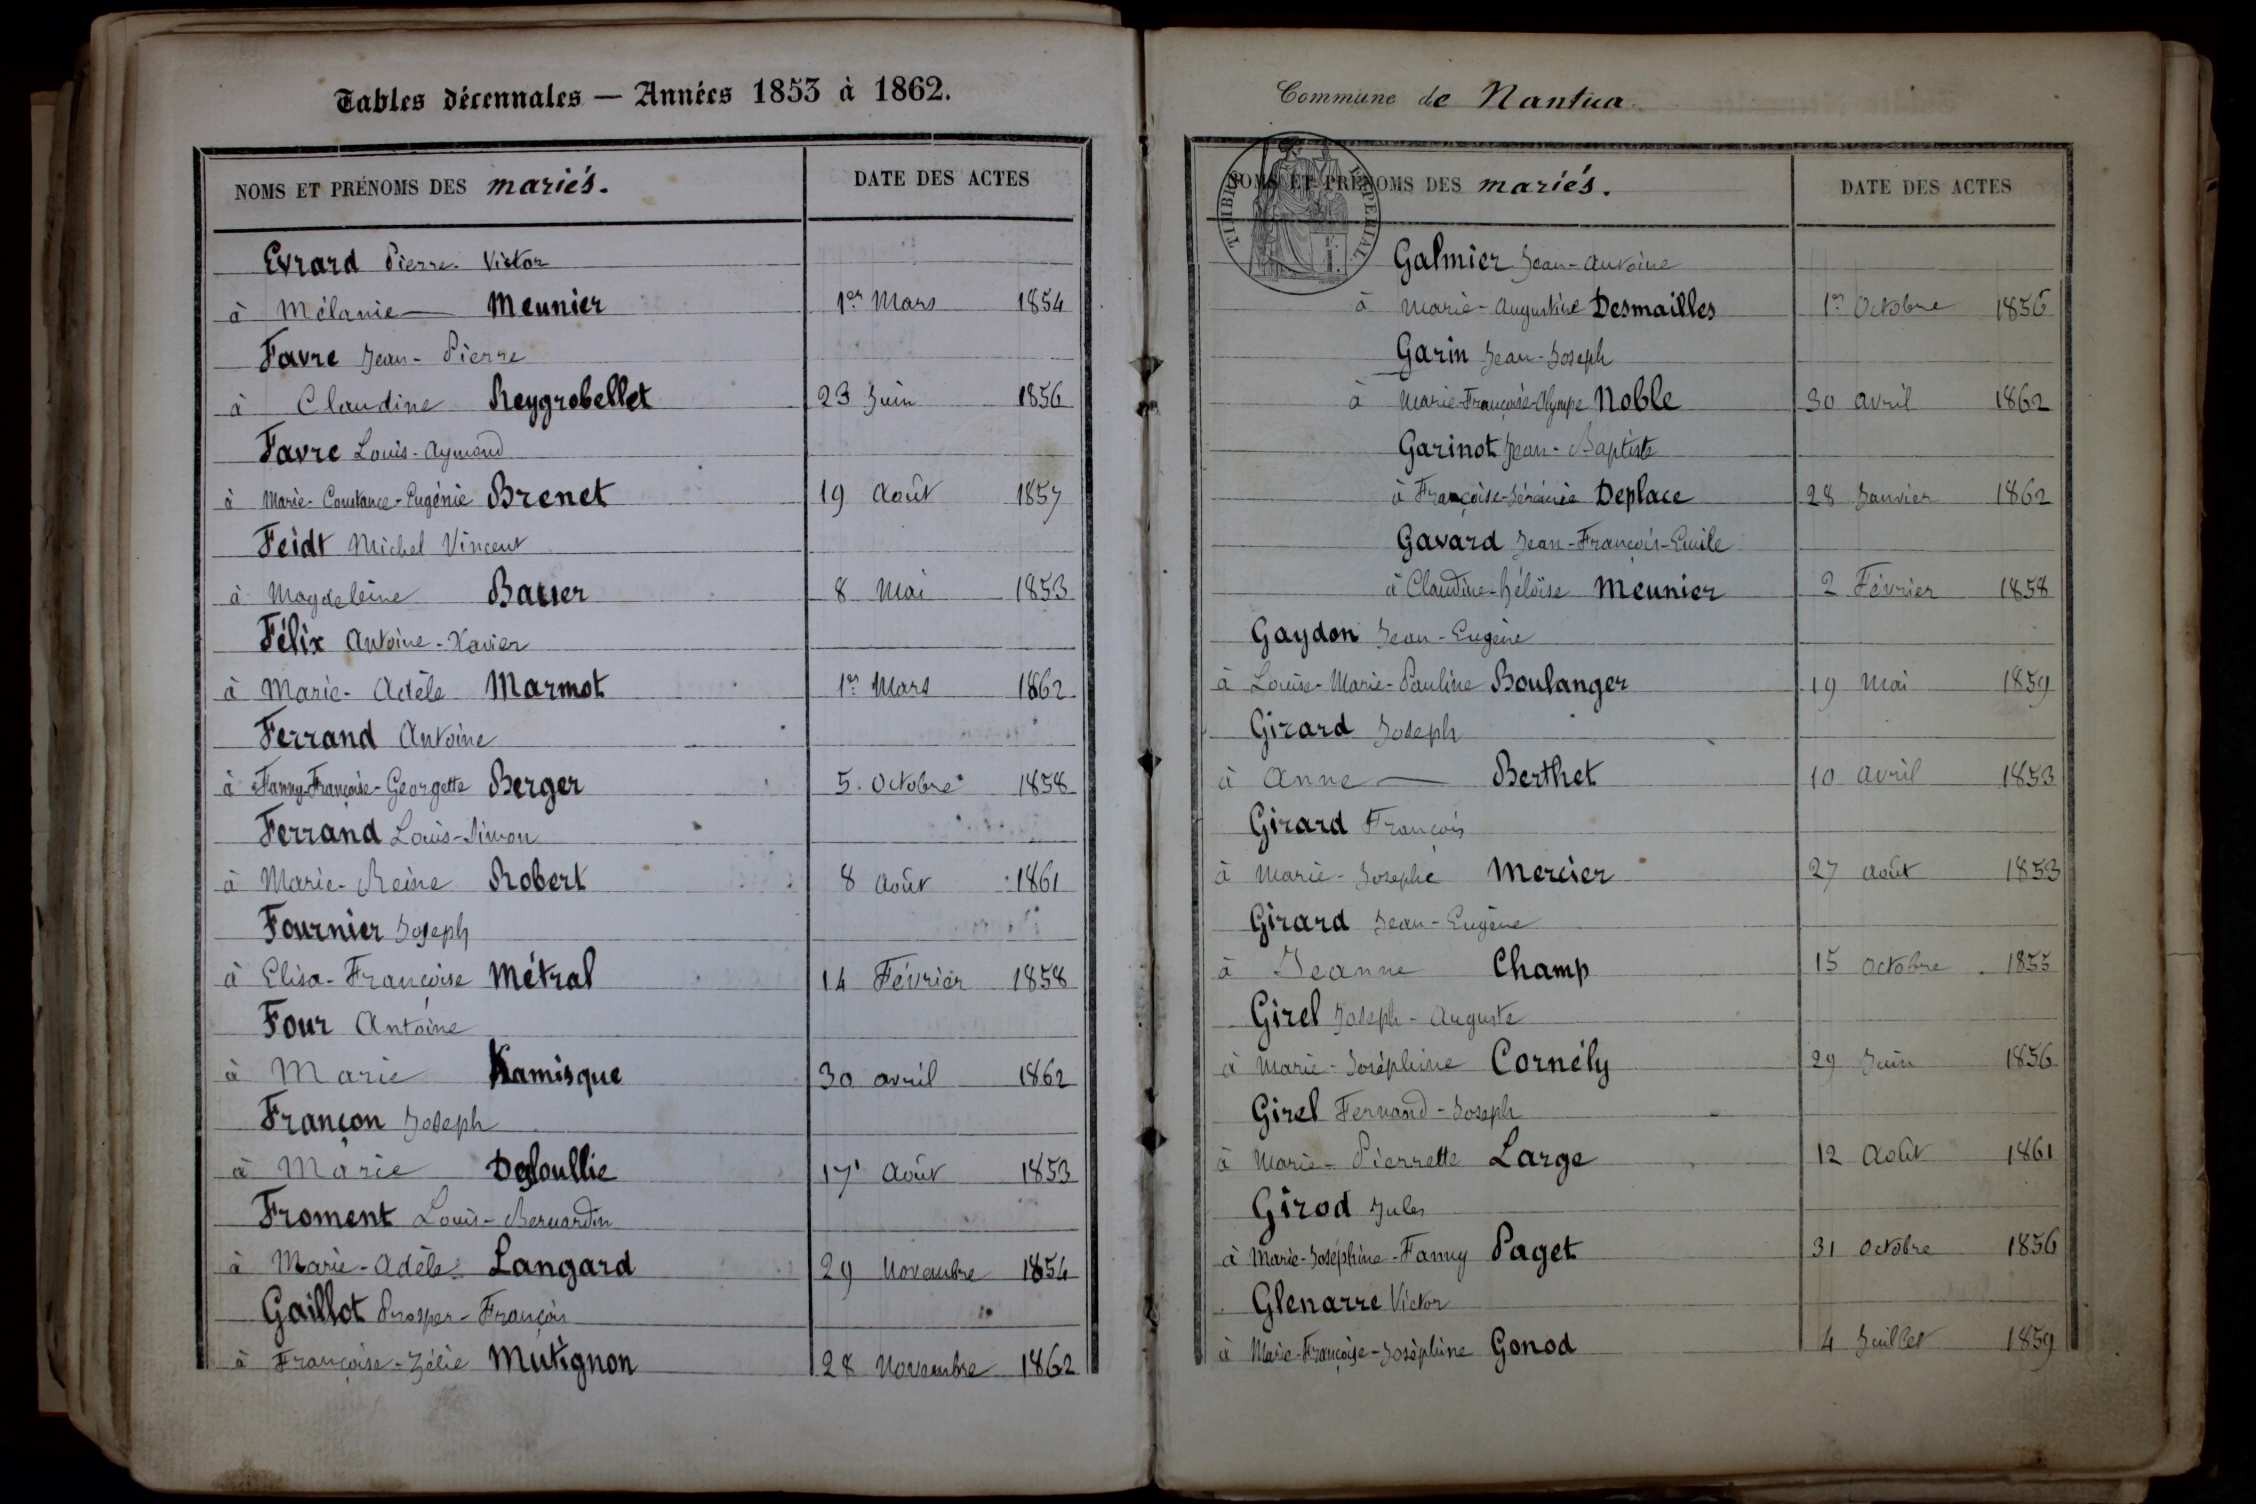 Tables décennales — Années 1853 à 1862.
NOMS ET PRÉNOMS DES mariés. DATE DES ACTES
Evrard Pierre Victor
à Mélanie Meunier 1er Mars 1854
Favre Jean-Pierre
à Claudine Reygrobellet 23 Juin 1856
Favre Louis-Aymond
à Marie-Constance-Eugénie Brenet 19 Août 1857
Feidt Michel Vincent
à Magdeleine 8 Mai 1853
Félix Antoine-Xavier
à Marie-Adèle Marmot 1er Mars 1862
Ferrand Antoine
à Fanny-Françoise-Georgette Berger 5 Octobre 1858
Ferrand Louis-Simon
à Marie-Reine Robert 8 Août 1861
Fournier Joseph
à Elisa-Françoise Métral 14 Février 1858
Four Antoine
à Marie Kamisque 30 avril 1862
Françon Joseph
à Marie 17 Août 1853
Froment Louis-Bernardin
à Marie-Adèle Langard 29 Novembre 1854
Gaillot Prosper-François
à Françoise-Zélie Mutignon 28 Novembre 1862
Commune de Nantua
TIMBRE IMPERIAL
NOMS ET PRÉNOMS DES mariés. DATE DES ACTES
Galmier Jean-Antoine
à Marie-Augustine Desmailles 1er Octobre 1856
Garin Jean-Joseph
à Marie-Françoise-Olympe Noble 30 avril 1862
Garinot Jean-Baptiste
à Françoise-Sérénie Deplace 28 Janvier 1862
Gavard Jean-François-Emile
à Claudine-Héloïse Meunier 2 Février 1858
Gaydon Jean-Eugène
à Louise-Marie-Pauline Boulanger 19 Mai 1859
Girard Joseph
à Anne Berthet 10 avril 1853
Girard François
à Marie-Josephe Mercier 27 août 1853
Girard Jean-Eugène
à Jeanne Champ 15 Octobre 1855
Girel Joseph-Auguste
à Marie-Joséphine Cornély 29 Juin 1856
Girel Fernand-Joseph
à Marie-Pierrette Large 12 Août 1861
Girod Jules
à Marie-Joséphine-Fanny Paget 31 Octobre 1856
Glenarre Victor
à Marie-Françoise-Joséphine Gonod 4 Juillet 1859